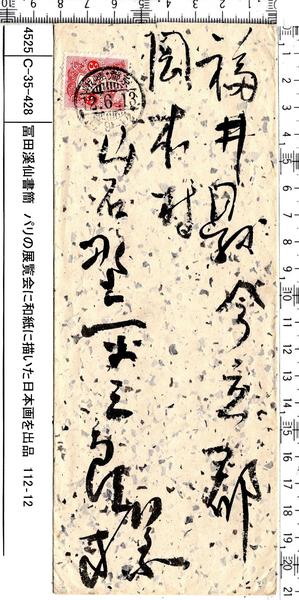 福井縣今立郡
岡本村
岩野平三郎様
.6.13
4525 C-35-428 冨田溪仙書簡 パリの展覧会に和紙に描いた日本画を出品 112-12